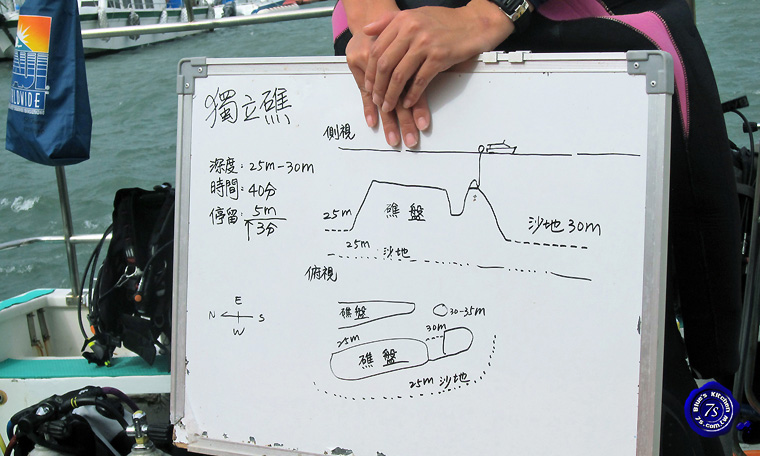 獨立礁
深度：25m-30m
時間：40分
停留：5m
3分
側視
25m
礁盤
沙地 30m
25m 沙地
俯視
E
N S
W
礁盤
30-35m
25m
30m
礁盤
25m 沙地
Blue's Kitchen
7s
7s.com.tw